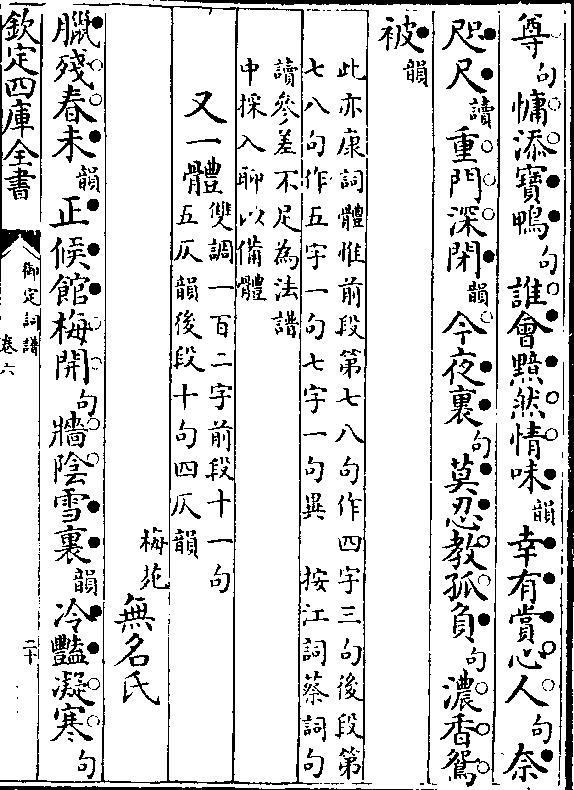 尊句慵添寳鴨句誰會黯然情味韻幸有賞心人句奈
咫尺讀重門深閉韻今夜裏句莫忍教孤負句濃香鴛
被韻
此亦康詞體惟前段第七八句作四字三句後段第
七八句作五字一句七字一句異　按江詞蔡詞句
讀參差不足為法譜
中採入聊以備體
又一體雙調一百二字前段十一句
五仄韻後段十句四仄韻
梅苑無名氏
臘殘春未韻正候館梅開句牆陰雪裏韻冷豔凝寒句
欽定四庫全書
御定詞譜
卷六
二十